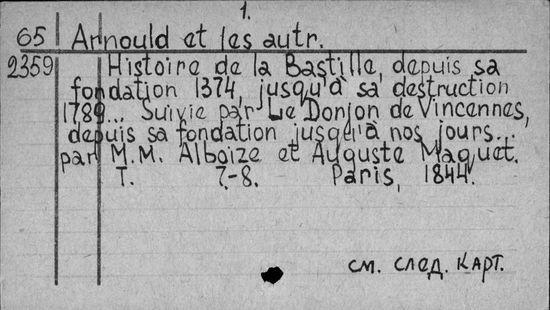 1.
65 Arnould et les autr.
2359 Histoire de la Bastille, depuis sa
fondation 1374, jusqu'à sa destruction
1789... Suivie par Le Donjon de Vincennes,
depuis sa fondation jusqu'à nos jours...
par M.M. Alboize et Auguste Maquet.
T. 7-8. Paris, 1844.
см. след. карт.